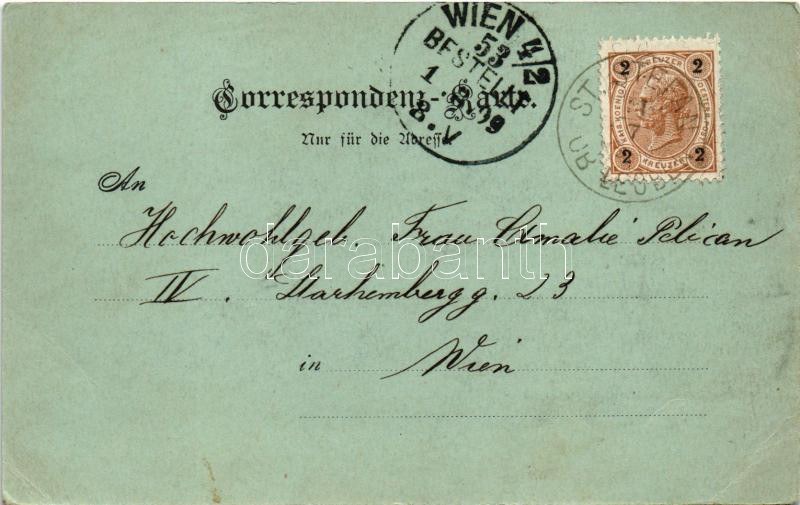 WIEN 4/2
53
BESTELLT
1. 8. 99
8.V
Correspondenz-Karte.
Nur für die Adresse
2 KREUZER 2
2 KREUZER 2
ST.
An
Hochwohlgeb. Frau Amalie Pelican
IV. Starhembergg. 23
in Wien
darabanth